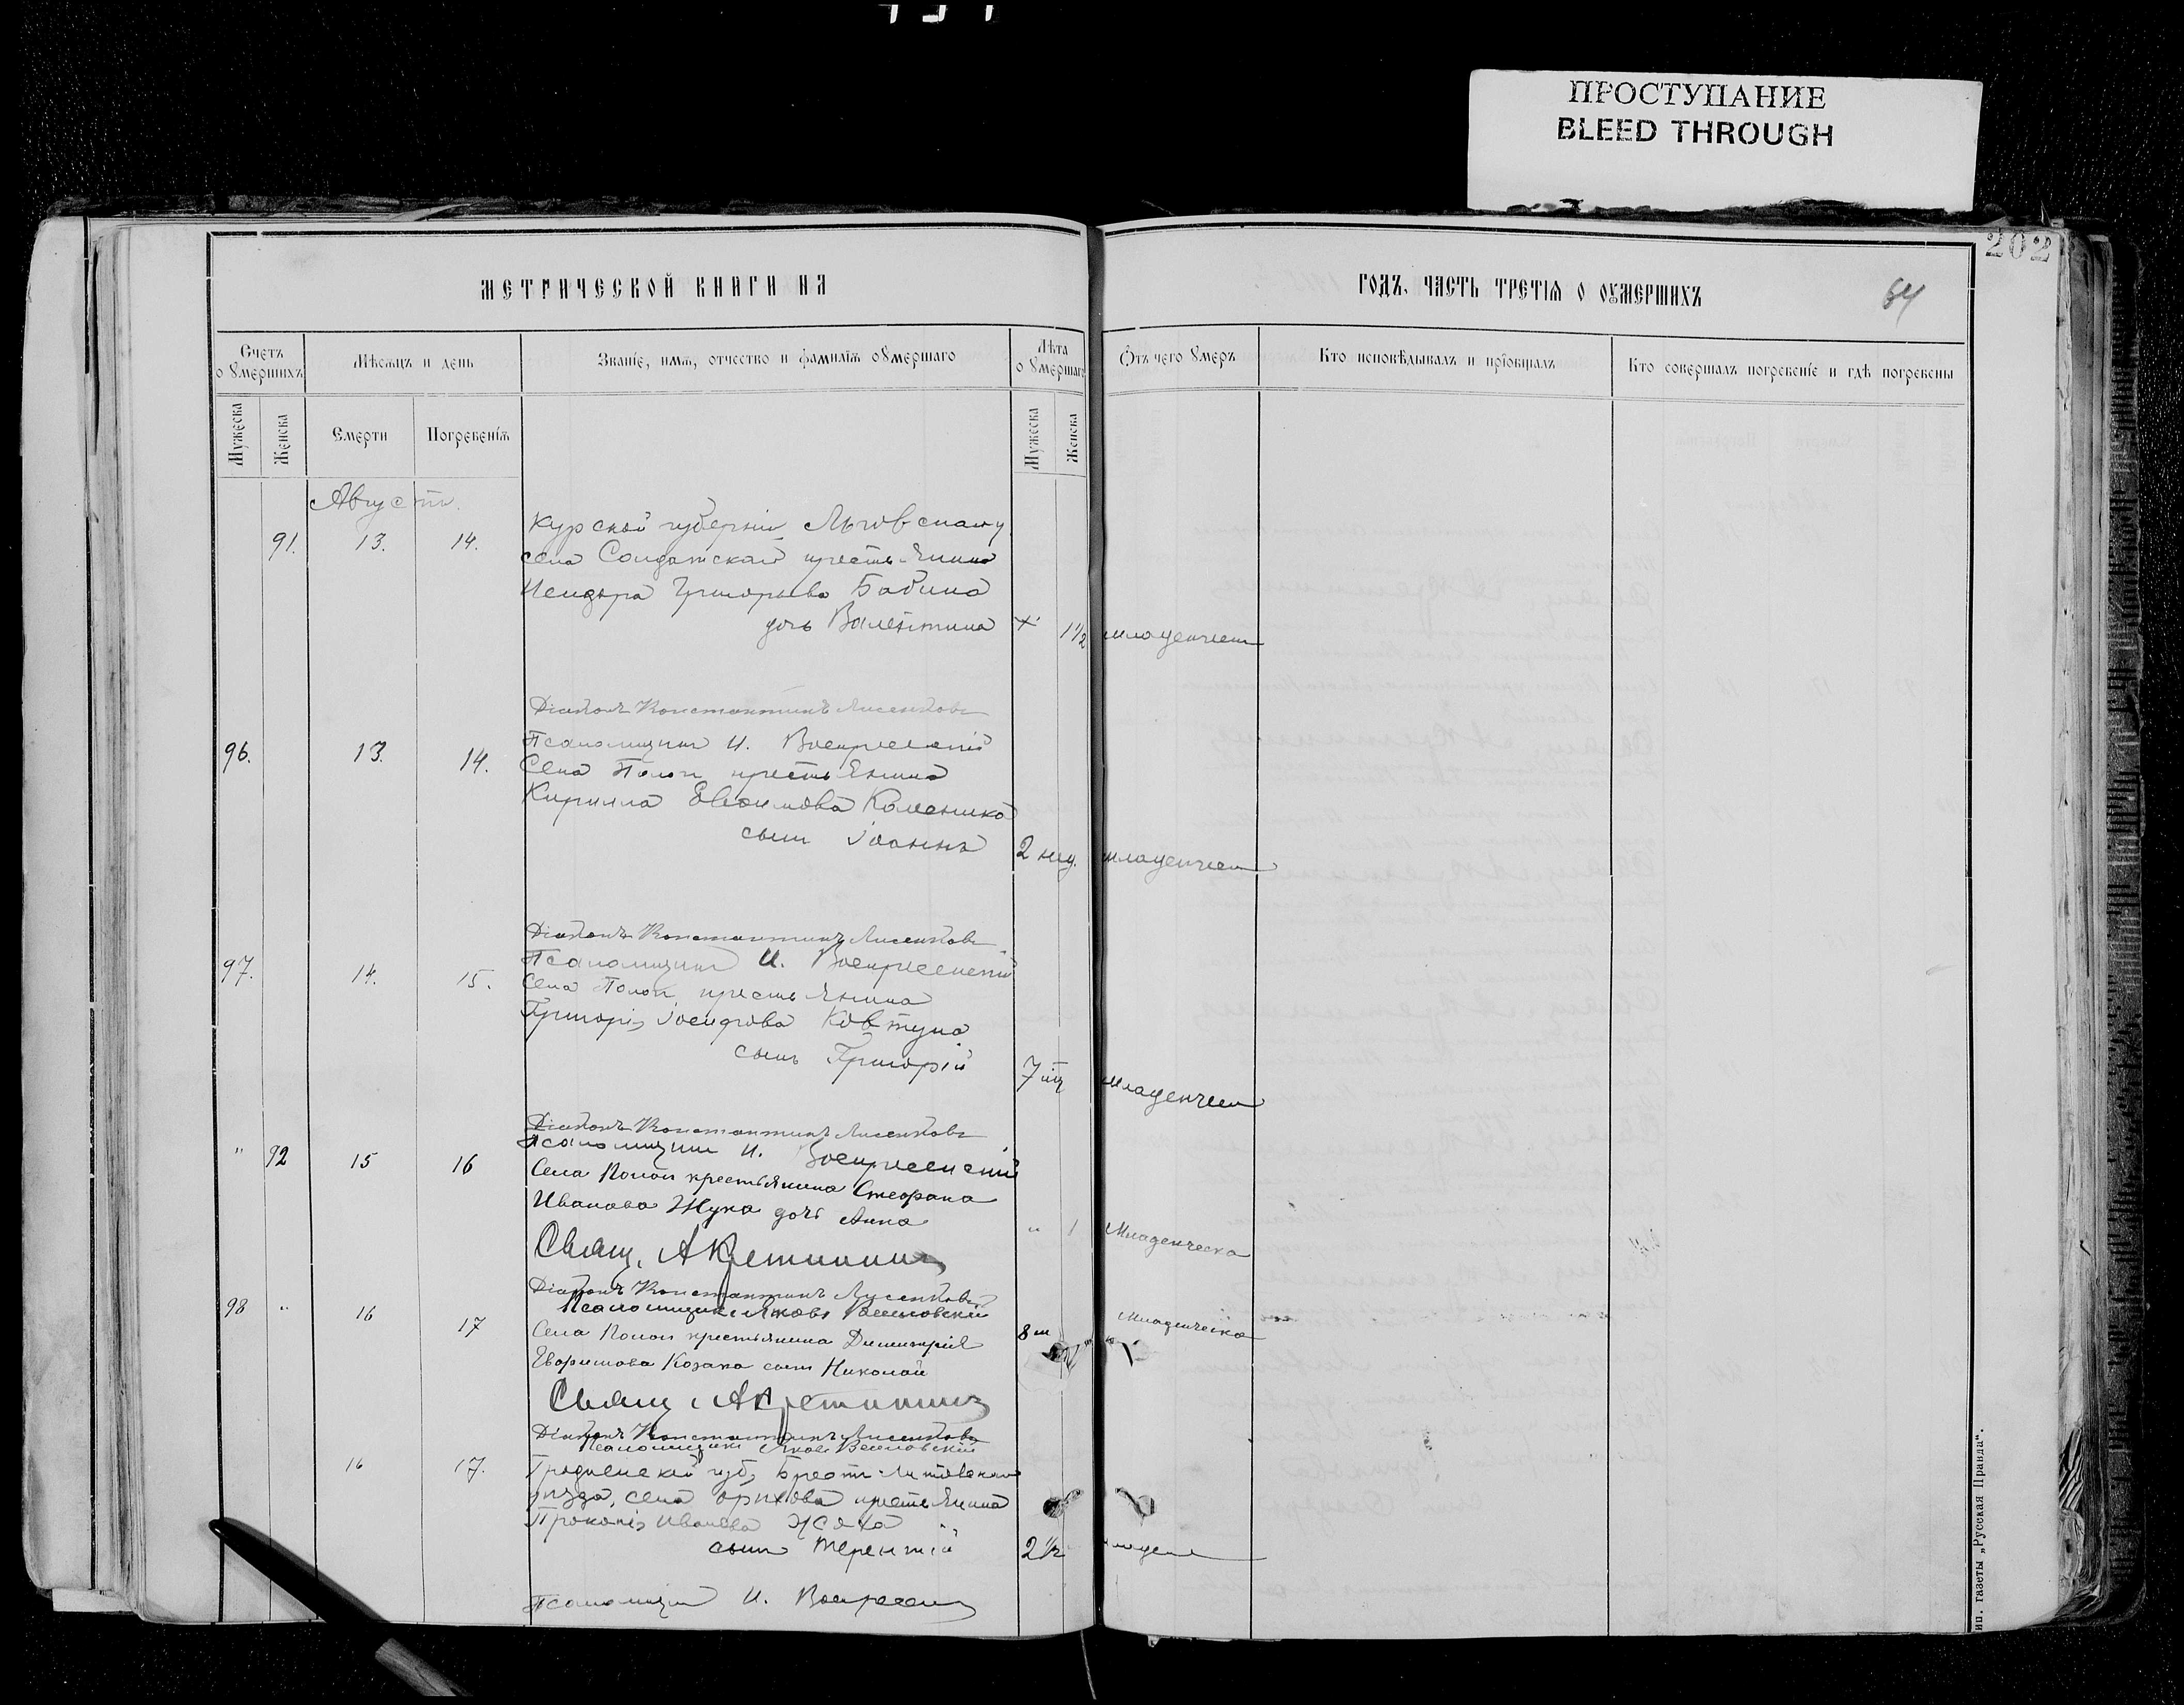 ПРОСТУПАНИЕ
BLEED THROUGH
202
64
МЕТРИЧЕСКОЙ КНИГИ НА
ГОДЪ, ЧАСТЬ ТРЕТІЯ О ОУМЕРШИХЪ
Счетъ о умершихъ
Мѣсяцъ и день
Званіе, имя, отчество и фамилія умершаго
Лѣта о умершаго
Отъ чего умеръ
Кто исповѣдывалъ и пріобщалъ
Кто совершалъ погребеніе и гдѣ погребены
Мужеска
Женска
Смерти
Погребенія
Мужеска
Женска
Августъ.
91. 13. 14.
Курской губерніи Льговскаго
села Солдатскаго крестьянина
Григорьева Бабина
дочь Валентина + 1 1/2 младенческ
Діаконъ Константинъ Лисенковъ
Псаломщикъ И. Воскресенскій
96. 13. 14.
Села Пологи крестьянина
Кирилла Евѳимова
сынъ Іоаннъ 2 нед. младенческ
Діаконъ Константинъ Лисенковъ
Псаломщикъ И. Воскресенскій
97. 14. 15.
Села Пологи крестьянина
Григорія Іосифова Ковтуна
сынъ Григорій 7 младенческ
Діаконъ Константинъ Лисенковъ
Псаломщикъ И. Воскресенскій
" 92 15 16
Села Пологи крестьянина Стефана
Иванова Жука дочь Анна " 1 Младенческа
Свящ. А Кретининъ
Діаконъ Константинъ Лисенковъ
Псаломщикъ Яковъ
98 " 16 17
Села Пологи крестьянина Димитрія 8 м Младенческа
Козака сынъ Николай
Свящ. А Кретининъ
Діаконъ Константинъ Лисенковъ
Псаломщикъ Яковъ
16 17.
Гродненской губ, Брестъ-Литовскаго
уѣзда, села Орѣхова крестьянина
Прокопія Иванова
сынъ Терентій 2 1/2
Псаломщик И. Воскресен
ип. газеты „Русская Правда“.